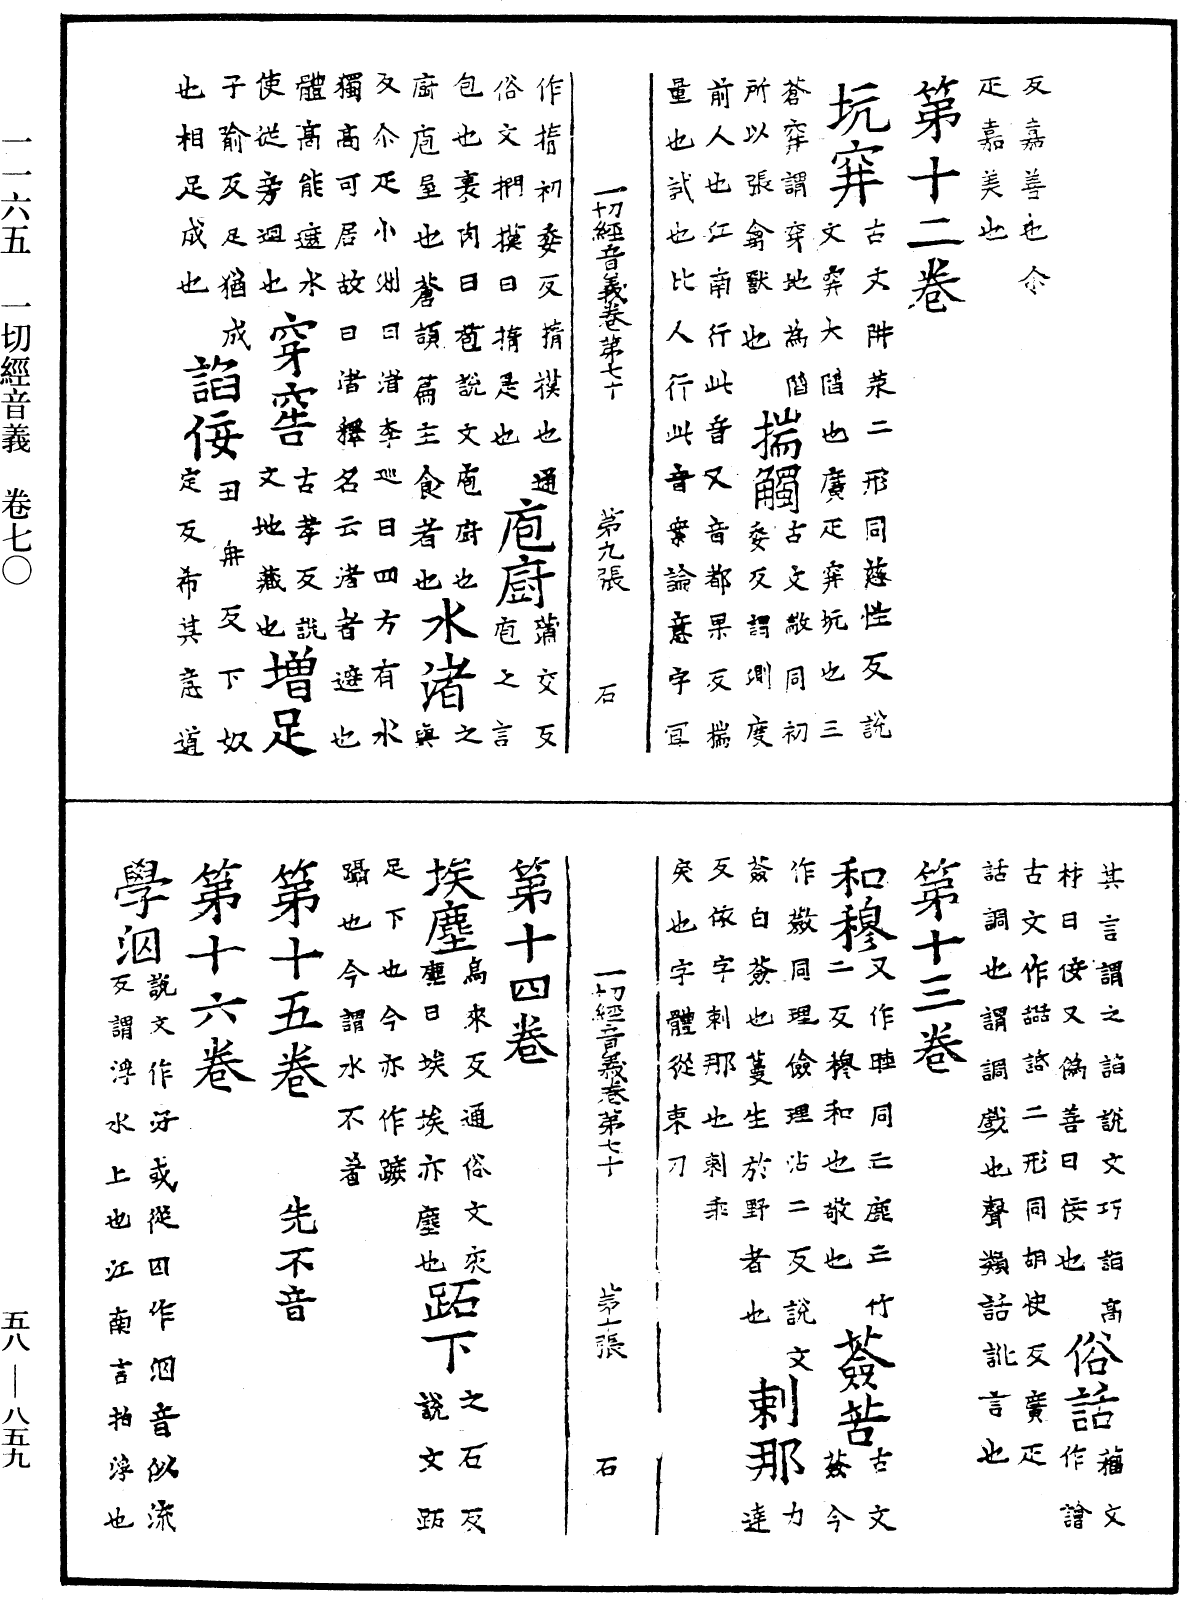 反嘉善也尒
疋嘉美也
第十二卷
坑穽古文阱汬二形同慈性反說
文穽大陷也廣疋穽坑也三
蒼穽謂穿地為陷
所以張禽獸也揣觸古文敊同初
委反謂測度
前人也江南行此音又音都果反揣
量也試也比人行此音案論意字宜
一切經音義卷第七十 第九張 石
作揣初委反揣摸也通
俗文捫摸曰揣是也庖廚蒲交反
庖之言
包也裹肉曰苞說文庖廚也
廚庖屋也蒼頡篇主食者也水渚之
與
反尒疋小洲曰渚李巡曰四方有水
獨高可居故曰渚釋名云渚者遮也
體高能遮水
使從旁迴也穿窖古孝反說
文地藏也增足
子喻反足猶成
也相足成也諂佞丑冉反下奴
定反希其意道
其言謂之諂說文巧諂高
材曰佞又偽善曰佞也俗話籀文
作譮
古文作䛡諙二形同胡快反廣疋
話調也謂調戲也聲類話訛言也
第十三卷
和穆又作睦同亡鹿亡竹
二反穆和也敬也薟苦古文
薟今
作蘞同理儉理沾二反說文
薟白薟也蔓生於野者也剌那力
達
反依字剌那也剌乖
戾也字體從束刀
一切經音義卷第七十 第十張 石
第十四卷
埃塵烏來反通俗文灾
塵曰埃埃亦塵也跖下之石反
說文跖
足下也今亦作蹠
躡也今謂水不著
第十五卷 先不音
第十六卷
學泅說文作汓或從囚作泅音似流
反謂浮水上也江南言拍浮也
一一六五 一切經音義 卷七〇
五八—八五九